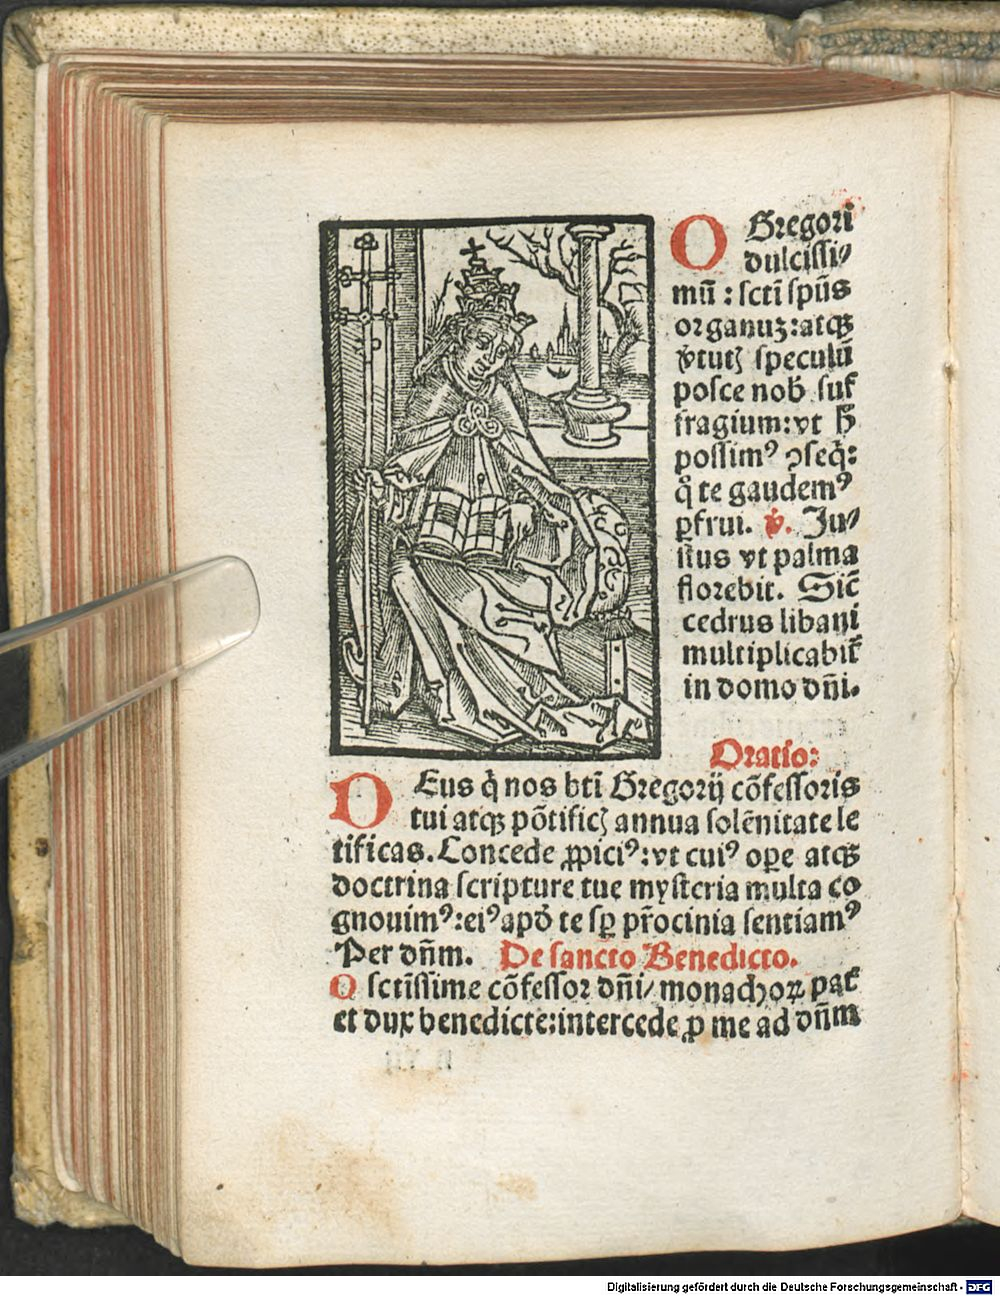 O Gregori
dulcissi/
mū : sctī spūs
organuꝫ: atqꝫ
v̓tutꝭ speculū
posce nob̓ suf
fragium: vt h̓
possimꝰ ꝯseq̄:
q̄ te gaudemꝰ
ꝑfrui. ℣. Iu/
stus vt palma
florebit. Sic̄
cedrus libani
multiplicabit̄
in domo dn̄i.
Oratio:
DEus q̄ nos btī Gregorij cōfessoris
tui atqꝫ pōtificꝭ annua solēnitate le
tificas. Concede ꝓpiciꝰ: vt cuiꝰ oꝑe atqꝫ
doctrina scripture tue mysteria multa co
gnouimꝰ: eiꝰ apd̓ te sꝑ pr̄ocinia sentiamꝰ
Per dn̄m. De sancto Benedicto.
O sctīssime cōfessor dn̄i/ monachoꝝ pat̄
et dux benedicte: intercede ꝓ me ad dn̄m
Digitalisierung gefördert durch die Deutsche Forschungsgemeinschaft - DFG